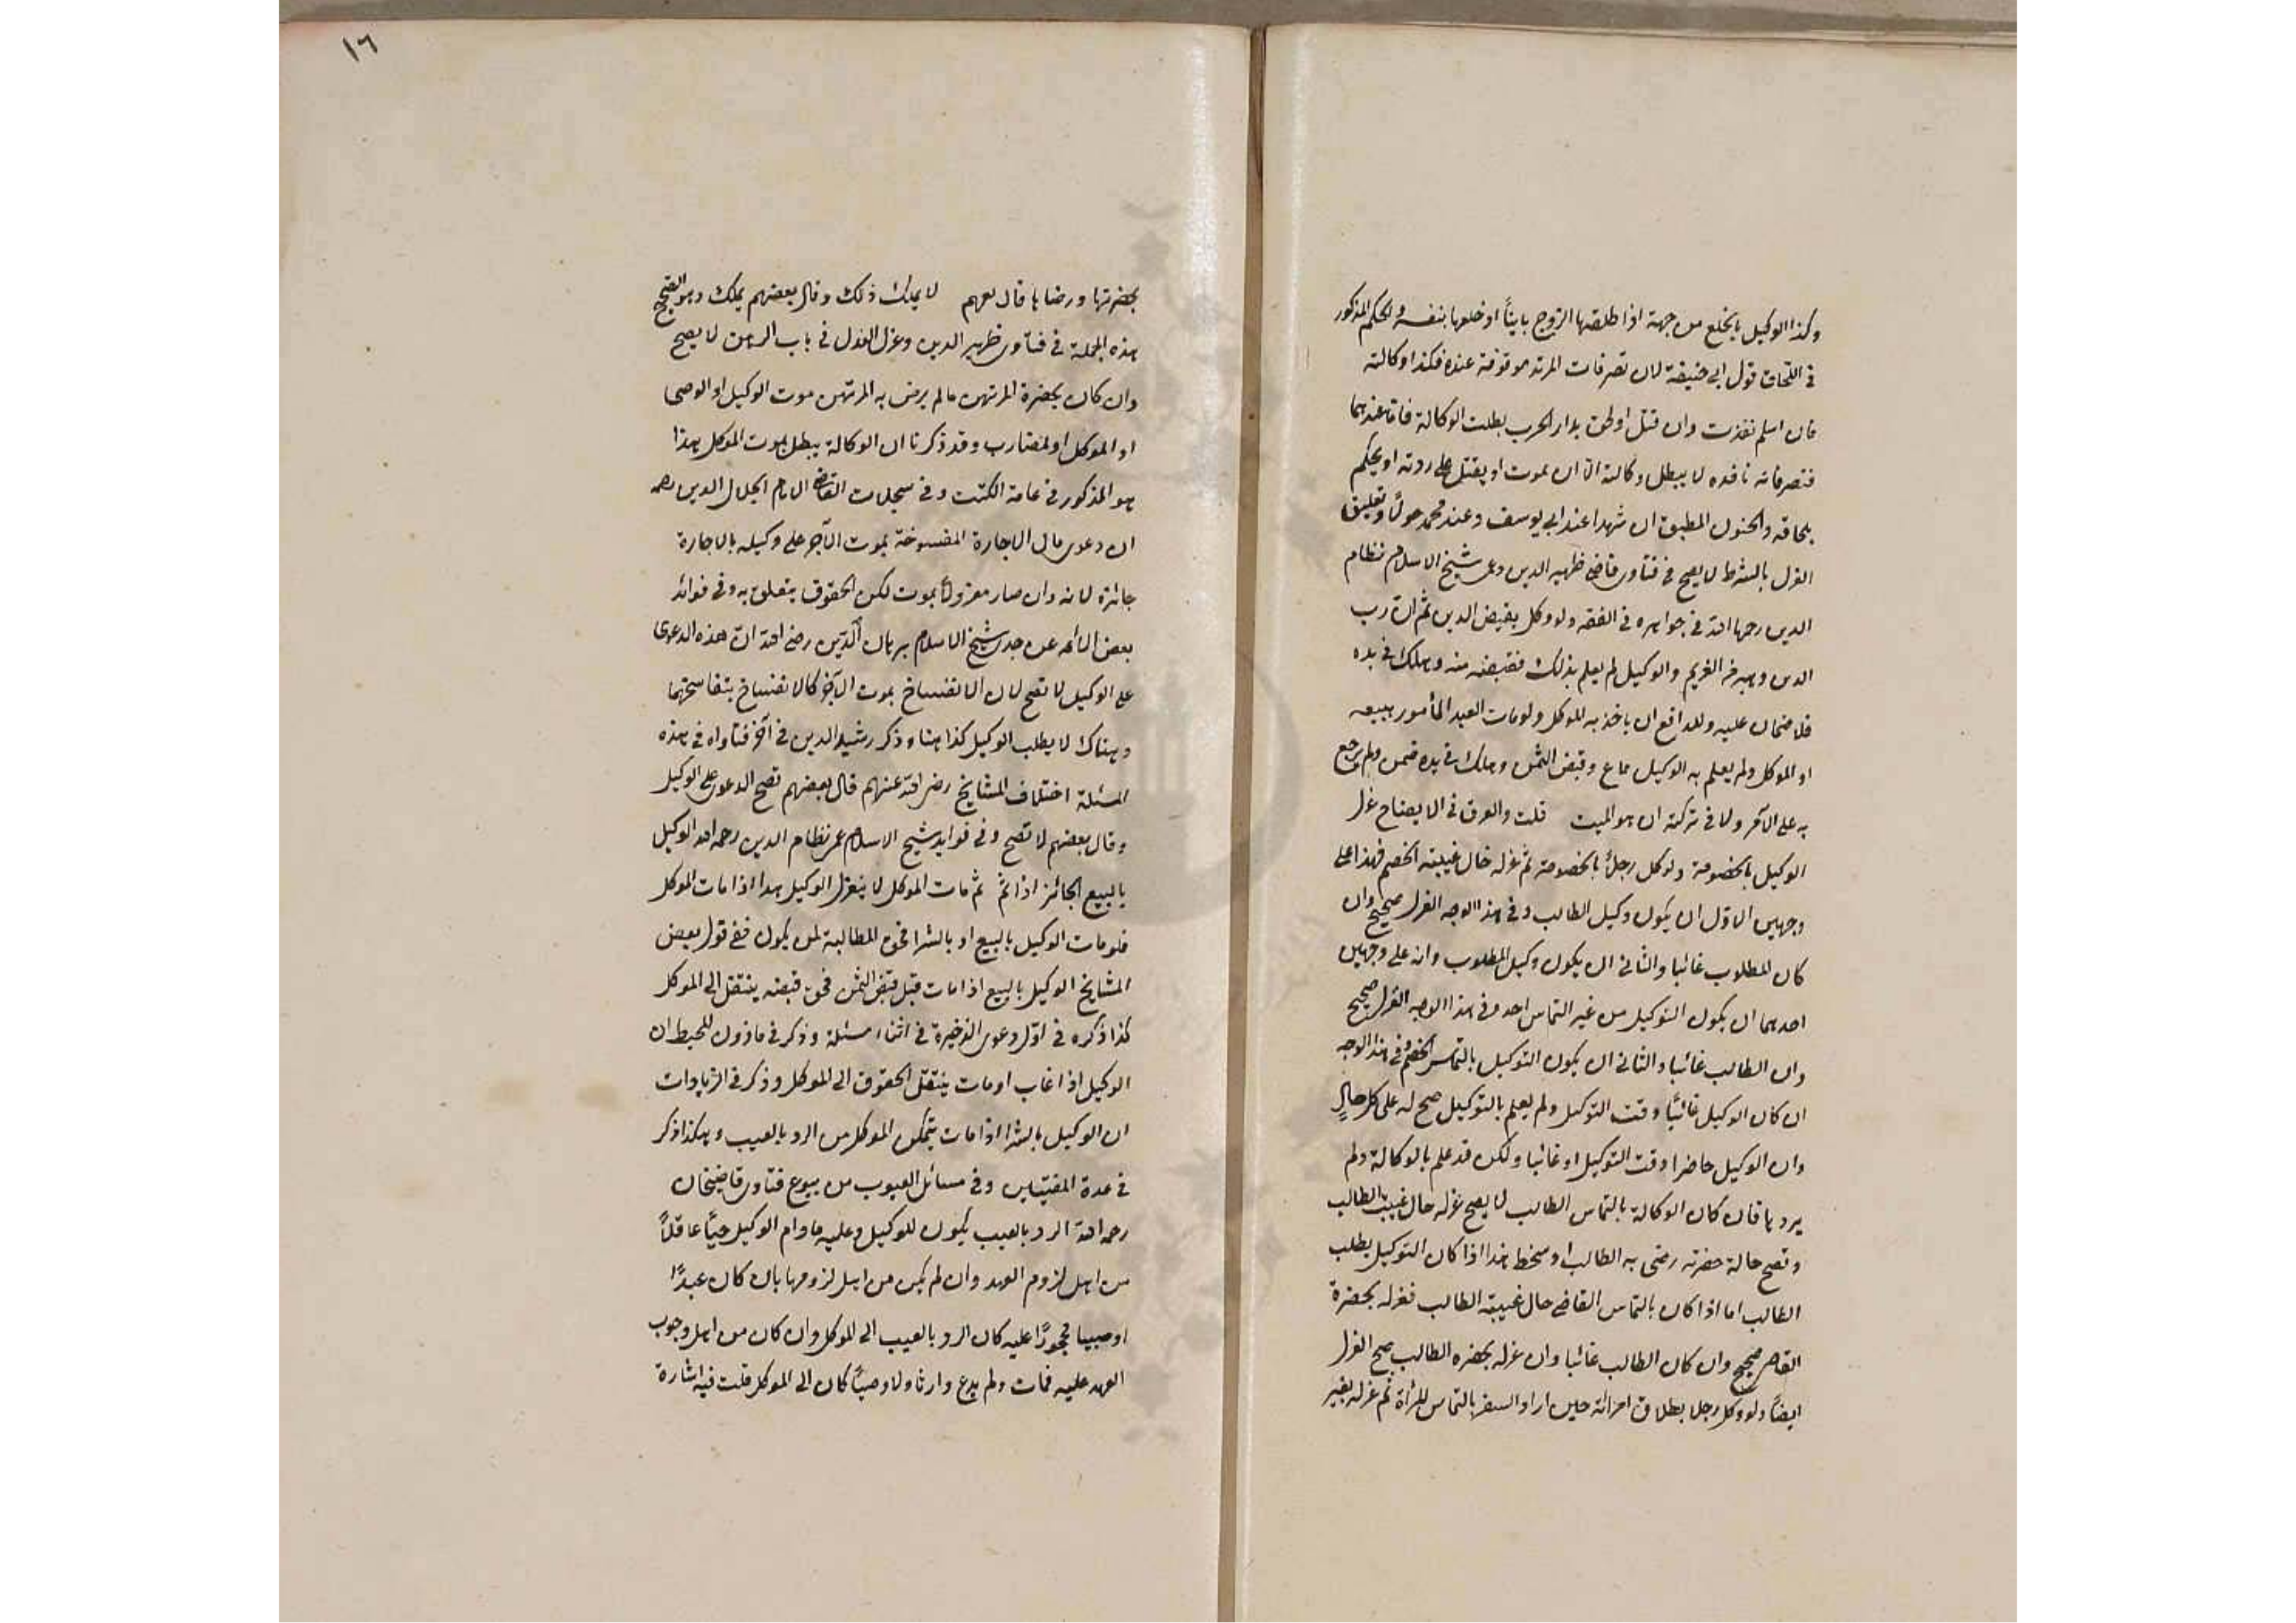 وكذا الوكيل بالخلع من جهة اذا طلقها الزوج باينًا او خلعها بنفسه والحكم المذكور
في اللحاق قول ابي حنيفة لان تصرفات المرتد موقوفة عنده فكذا وكالته
فان اسلم نفذت وان قتل او لحق بدار الحرب بطلت الوكالة فاما عندهما
فتصرفاته نافذه لا يبطل وكالته الا ان يموت او يقتل على ردته او يحكم
بلحاقه والجنون المطبق ان شهدا عند ابي يوسف وعند محمد حولًا وتعليق
العزل بالشرط لا يصح في فتاوى قاضي ظهير الدين وعن شيخ الاسلام نظام
الدين رحمها الله في جواهره في الفقه ولو وكل بقبض الدين ثم ان رب
الدين وهبه من الغريم والوكيل لم يعلم بذلك فقبضه منه وهلك في يده
فلا ضمان عليه وللدافع ان ياخذ به الموكل ولو مات العبد المأمور ببيعه
او الموكل ولم يعلم به الوكيل فباع وقبض الثمن وهلك في يده ضمن ولم يرجع
به على الآمر ولا في تركته ان هو الميت قلت والفرق في الايضاح عزل
الوكيل بالخصومة ولو كل رجلًا بالخصومة ثم عزله حال غيبة الخصم فهذا على
وجهين الاول ان يكون وكيل الطالب وفي هذا الوجه العزل صحيح وان
كان المطلوب غائبا والثاني ان يكون وكيل المطلوب وانه على وجهين
احدهما ان يكون التوكيل من غير التماس احد وفي هذا الوجه العزل صحيح
وان الطالب غائبا والثاني ان يكون التوكيل بالتماس الخصم وفي هذا الوجه
ان كان الوكيل غائبًا وقت التوكيل ولم يعلم بالتوكيل صح له على كل حالٍ
وان الوكيل حاضرا وقت التوكيل او غائبا ولكن قد علم بالوكالة ولم
يردها فان كان الوكالة بالتماس الطالب لا يصح عزله حال غيبة الطالب
وتصح حالة حضرته رضي به الطالب او سخط هذا اذا كان التوكيل بطلب
الطالب اما اذا كان بالتماس القاضي حال غيبة الطالب فعزله بحضرة
القاضي صحيح وان كان الطالب غائبا وان عزله بحضره الطالب صح العزل
ايضًا ولو وكل رجلا بطلاق امرأته حين اراد السفر بالتماس المرأة ثم عزله بغير
١٦
بحضرتها ورضاها قال بعضهم لا يملك ذلك وقال بعضهم يملك وهو الصحيح
هذه الجملة في فتاوى ظهير الدين وعزل العدل في باب الرهن لا يصح
وان كان بحضرة المرتهن مالم يرض به المرتهن موت الوكيل او الوصي
او الموكل او المضارب وقد ذكرنا ان الوكالة يبطل بموت الموكل هذا
هو المذكور في عامة الكتب وفي سجلات القاضي الامام الجلال الدين رحمه
ان دعوى مال الاجارة المفسوخة بموت الآجر على وكيله بالاجارة
جائزة لانه وان صار معزولًا بموت لكن الحقوق يتعلق به وفي فوائد
بعض الائمه عن جدى شيخ الاسلام برهان الدين رضي الله ان هذه الدعوى
على الوكيل لا تصح لان الانفساخ بموت الآجر كالانفساخ بتفاسخهما
وهناك لا يطلب الوكيل كذا هنا وذكر رشيد الدين في آخر فتاواه في هذه
المسئلة اختلاف المشايخ رضي الله عنهم قال بعضهم تصح الدعوى على الوكيل
وقال بعضهم لا تصح وفي فوايد شيخ الاسلام عمر نظام الدين رحمه الله الوكيل
بالبيع الجائز اذا تمّ ثم مات الموكل لا ينعزل الوكيل هذا اذا مات الموكل
فلو مات الوكيل بالبيع او بالشرا فحق المطالبة لمن يكون ففي قول بعض
المشايخ الوكيل بالبيع اذا مات قبل قبض الثمن فحق قبضه ينتقل الى الموكل
كذا ذكره في اول دعوى الذخيرة في اثناء مسئلة وذكر في ماذون المحيط ان
الوكيل اذا غاب او مات ينتقل الحقوق الى الموكل وذكر في الزيادات
ان الوكيل بالشرا اذا مات يتمكن الموكل من الرد بالعيب وهكذا ذكر
في عدة المفتيين وفي مسائل العيوب من بيوع فتاوى قاضيخان
رحمه الله الرد بالعيب يكون للوكيل وعليه مادام الوكيل حيًّا عاقلًا
من اهل لزوم العهد وان لم يكن من اهل لزومها بان كان عبدًا
او صبيا محجورًا عليه كان الرد بالعيب الى الموكل وان كان من اهل وجوب
العهد عليه فمات ولم يدع وارثا ولا وصيًا كان الى الموكل قلت فيه اشارة